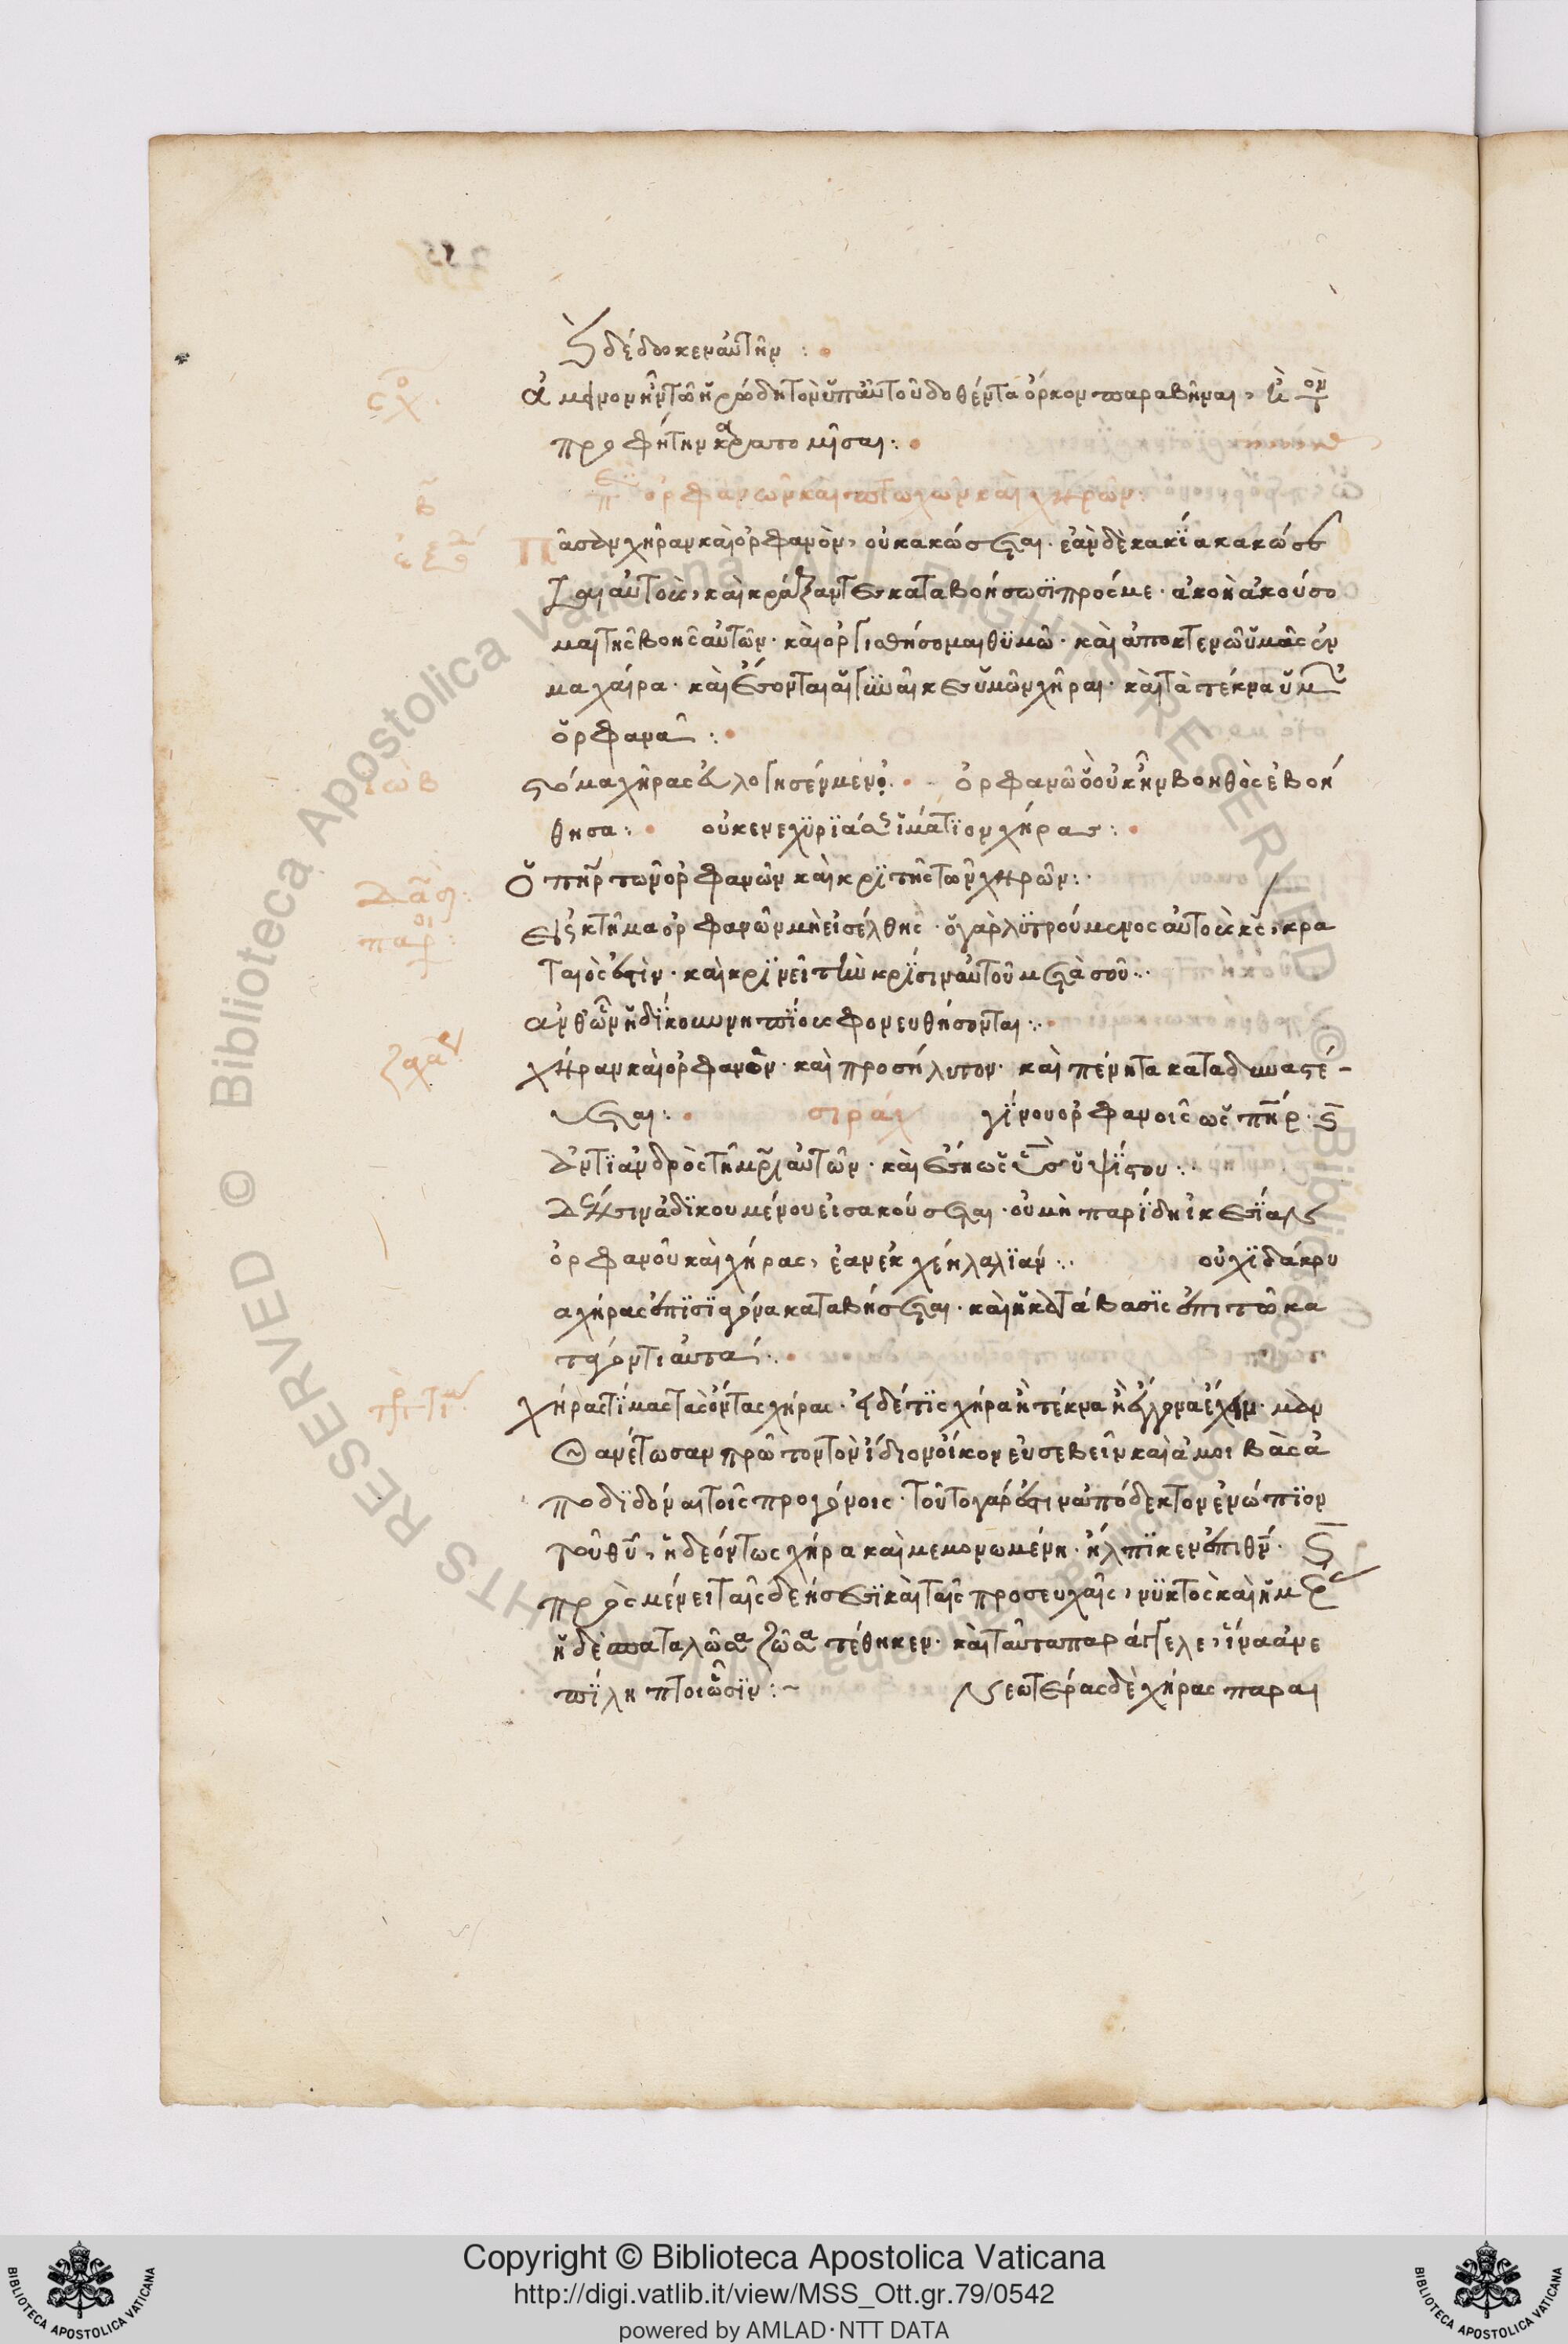 καὶ δέδωκεν αὐτήν :
ἄμεινον ἦν τῷ ἡρώδη τὸν ὑπ' αὐτοῦ δοθέντα ὅρκον παραβῆναι, ἢ τὸν
προφήτην καρατομῆσαι :
ὀρφανῶν καὶ πτωχῶν καὶ χηρῶν :
πᾶσαν χήραν καὶ ὀρφανὸν, οὐ κακώσεται. ἐὰν δὲ κακία κακώση
ται αὐτοὺς, καὶ κράξαντες καταβοήσωσι πρός με. ἀκοῆ ἀκούσο
μαι τῆς βοῆς αὐτῶν. καὶ ὀργισθήσομαι θυμῶ. καὶ ἀποκτενῶ ὑμᾶς ἐν
μαχαίρα. καὶ ἔσονται αἱ γυναῖκες ὑμῶν χῆραι. καὶ τὰ τέκνα ὑμῶν
ὀρφανά :
ἰὼβ
στόμα χήρας εὐλόγησέν με ὀρφανῶ ὧ οὐκ ἦν βοηθὸς ἐβοή
θησα : οὐκ ενεχυρίασ ἱμάτιον χήρας :
δαδ
ὁ πηρ τῶν ὀρφανῶν καὶ κριτὴς τῶν χηρῶν :
παρ
εἰς κτῆμα ὀρφανῶν μὴ εἰσέλθης. ὁ γὰρ λυτρούμενος αὐτοὺς κς, κρα
ταιός ἐστιν. καὶ κρινεῖ τὴν κρίσιν αὐτοῦ μετὰ σοῦ :
ἀνθ' ὧν ἠδίκουν νηπίους φονευθήσονται :
ζαχα
χήραν καὶ ὀρφανὸν. καὶ προσήλυτον. καὶ πένητα καταδυναστέ-
υεται : σιράχ γίνου ὀρφανοῖς ὡς πηρ. καὶ
ἀντὶ ἀνδρὸς τῆ μρι αὐτῶν. καὶ ἔση ὡς υς ὑψίστου :
δέησιν ἀδικουμένου εἰσακούσεται. οὐ μὴ παρίδη ἱκεσίαν
ὀρφανοῦ καὶ χήρας, ἐὰν ἐκχέη λαλιάν : οὐχὶ δάκρυ
α χήρας ἐπὶ σιαγόνα καταβήσεται. καὶ ἡ κατάβασις ἐπὶ τῶ κα
ταγόντι αὐτά :
χήρας τίμα τὰς ὄντας χήρας. εἰ δέ τις χήρα ἢ τέκνα ἢ ἔγγονα ἔχει. μαν
θανέτωσαν πρῶτον τὸν ἴδιον οἶκον εὐσεβεῖν καὶ ἀμοιβὰς ἀ
ποδιδόναι τοῖς προγόνοις. τοῦτο γάρ ἐστιν ἀπόδεκτον ἐνώπιον
τοῦ θυ, ἡ δε ὄντως χήρα καὶ μεμονωμένη. ἤλπικεν ἐπὶ θν. καὶ
προσμένει ταῖς δεήσεσι καὶ ταῖς προσευχαῖς, νυκτὸς καὶ ἡμέρας
ἡ δὲ σπαταλῶσα ζῶσα τέθνηκεν. καὶ ταῦτα παράγγελε, ἵνα ἀνε
πίληπτοι ὦσιν :~ νεωτέρας δὲ χήρας παραι
Copyright © Biblioteca Apostolica Vaticana
http://digi.vatlib.it/view/MSS_Ott.gr.79/0542
powered by AMLAD·NTT DATA